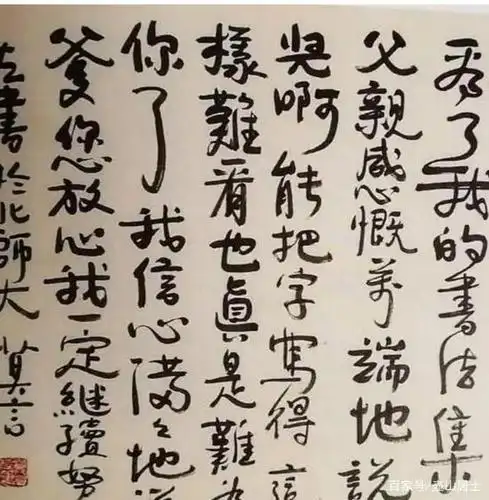 看了我的書法佳作
父親感慨萬端地説
兒啊能把字寫得這
樣難看也真是難為
你了我信心滿滿地説
爹你放心我一定继續努
左書於北師大 莫言
百家号/